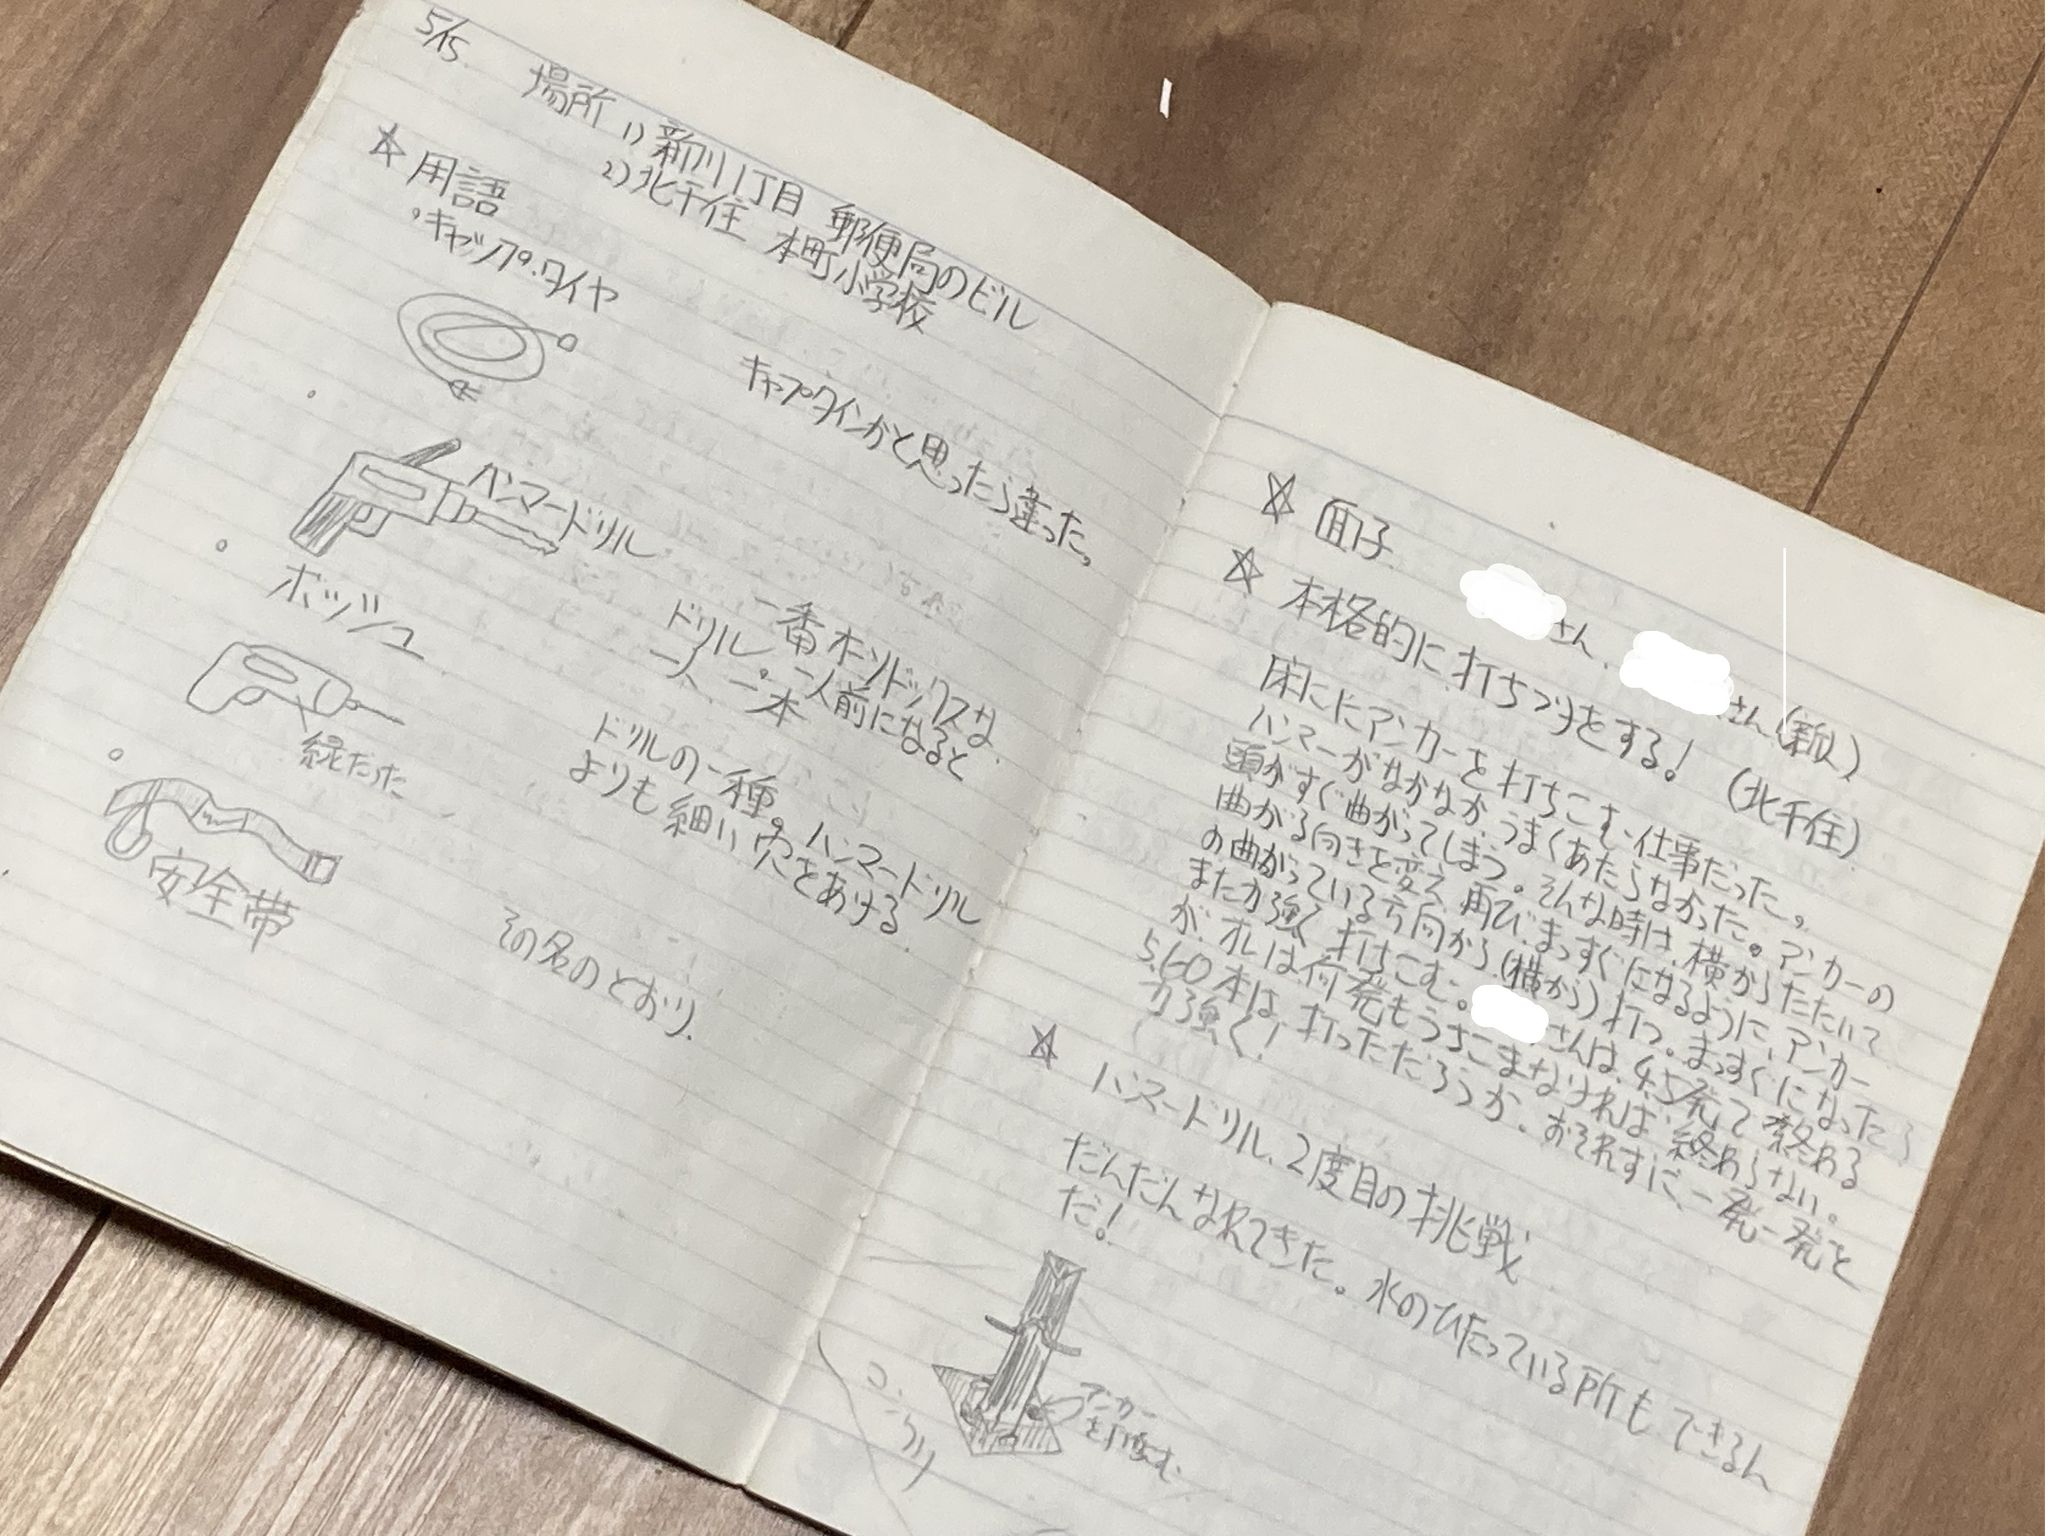 5/15
場所 1) 新川1丁目 郵便局のビル
2) 北千住 本町小学校
☆ 用語
・キャップ・タイヤ
キャプタインかと思ったら違った。
ハンマードリル
一番オーソドックスな
ドリル。一人前になると
一人、一本
ボッシュ
緑だった
ドリルの一種。ハンマードリル
よりも細い穴をあける.
安全帯
その名のとおり.
☆ 面子
さん、 さん(新人)
☆ 本格的に打ちつけをする! (北千住)
床にアンカーを打ちこむ仕事だった。
ハンマーがなかなかうまくあたらなかった。アンカーの
頭がすぐ曲がってしまう。そんな時は、横からたたいて
曲がる向きを変え、再びまっすぐになるように、アンカー
の曲がっている方向から(横から)打つ。まっすぐになったら
また力強く打ちこむ。 さんは、4.5発で終わる
が、オレは何発もうちこまなければ終わらない。
5.60本は打っただろうか、おそれずに、一発一発を
力強く!
☆ ハンマードリル、2度目の挑戦
だんだんなれてきた。水のひたっている所もできるん
だ!
アンカー
コンクリ